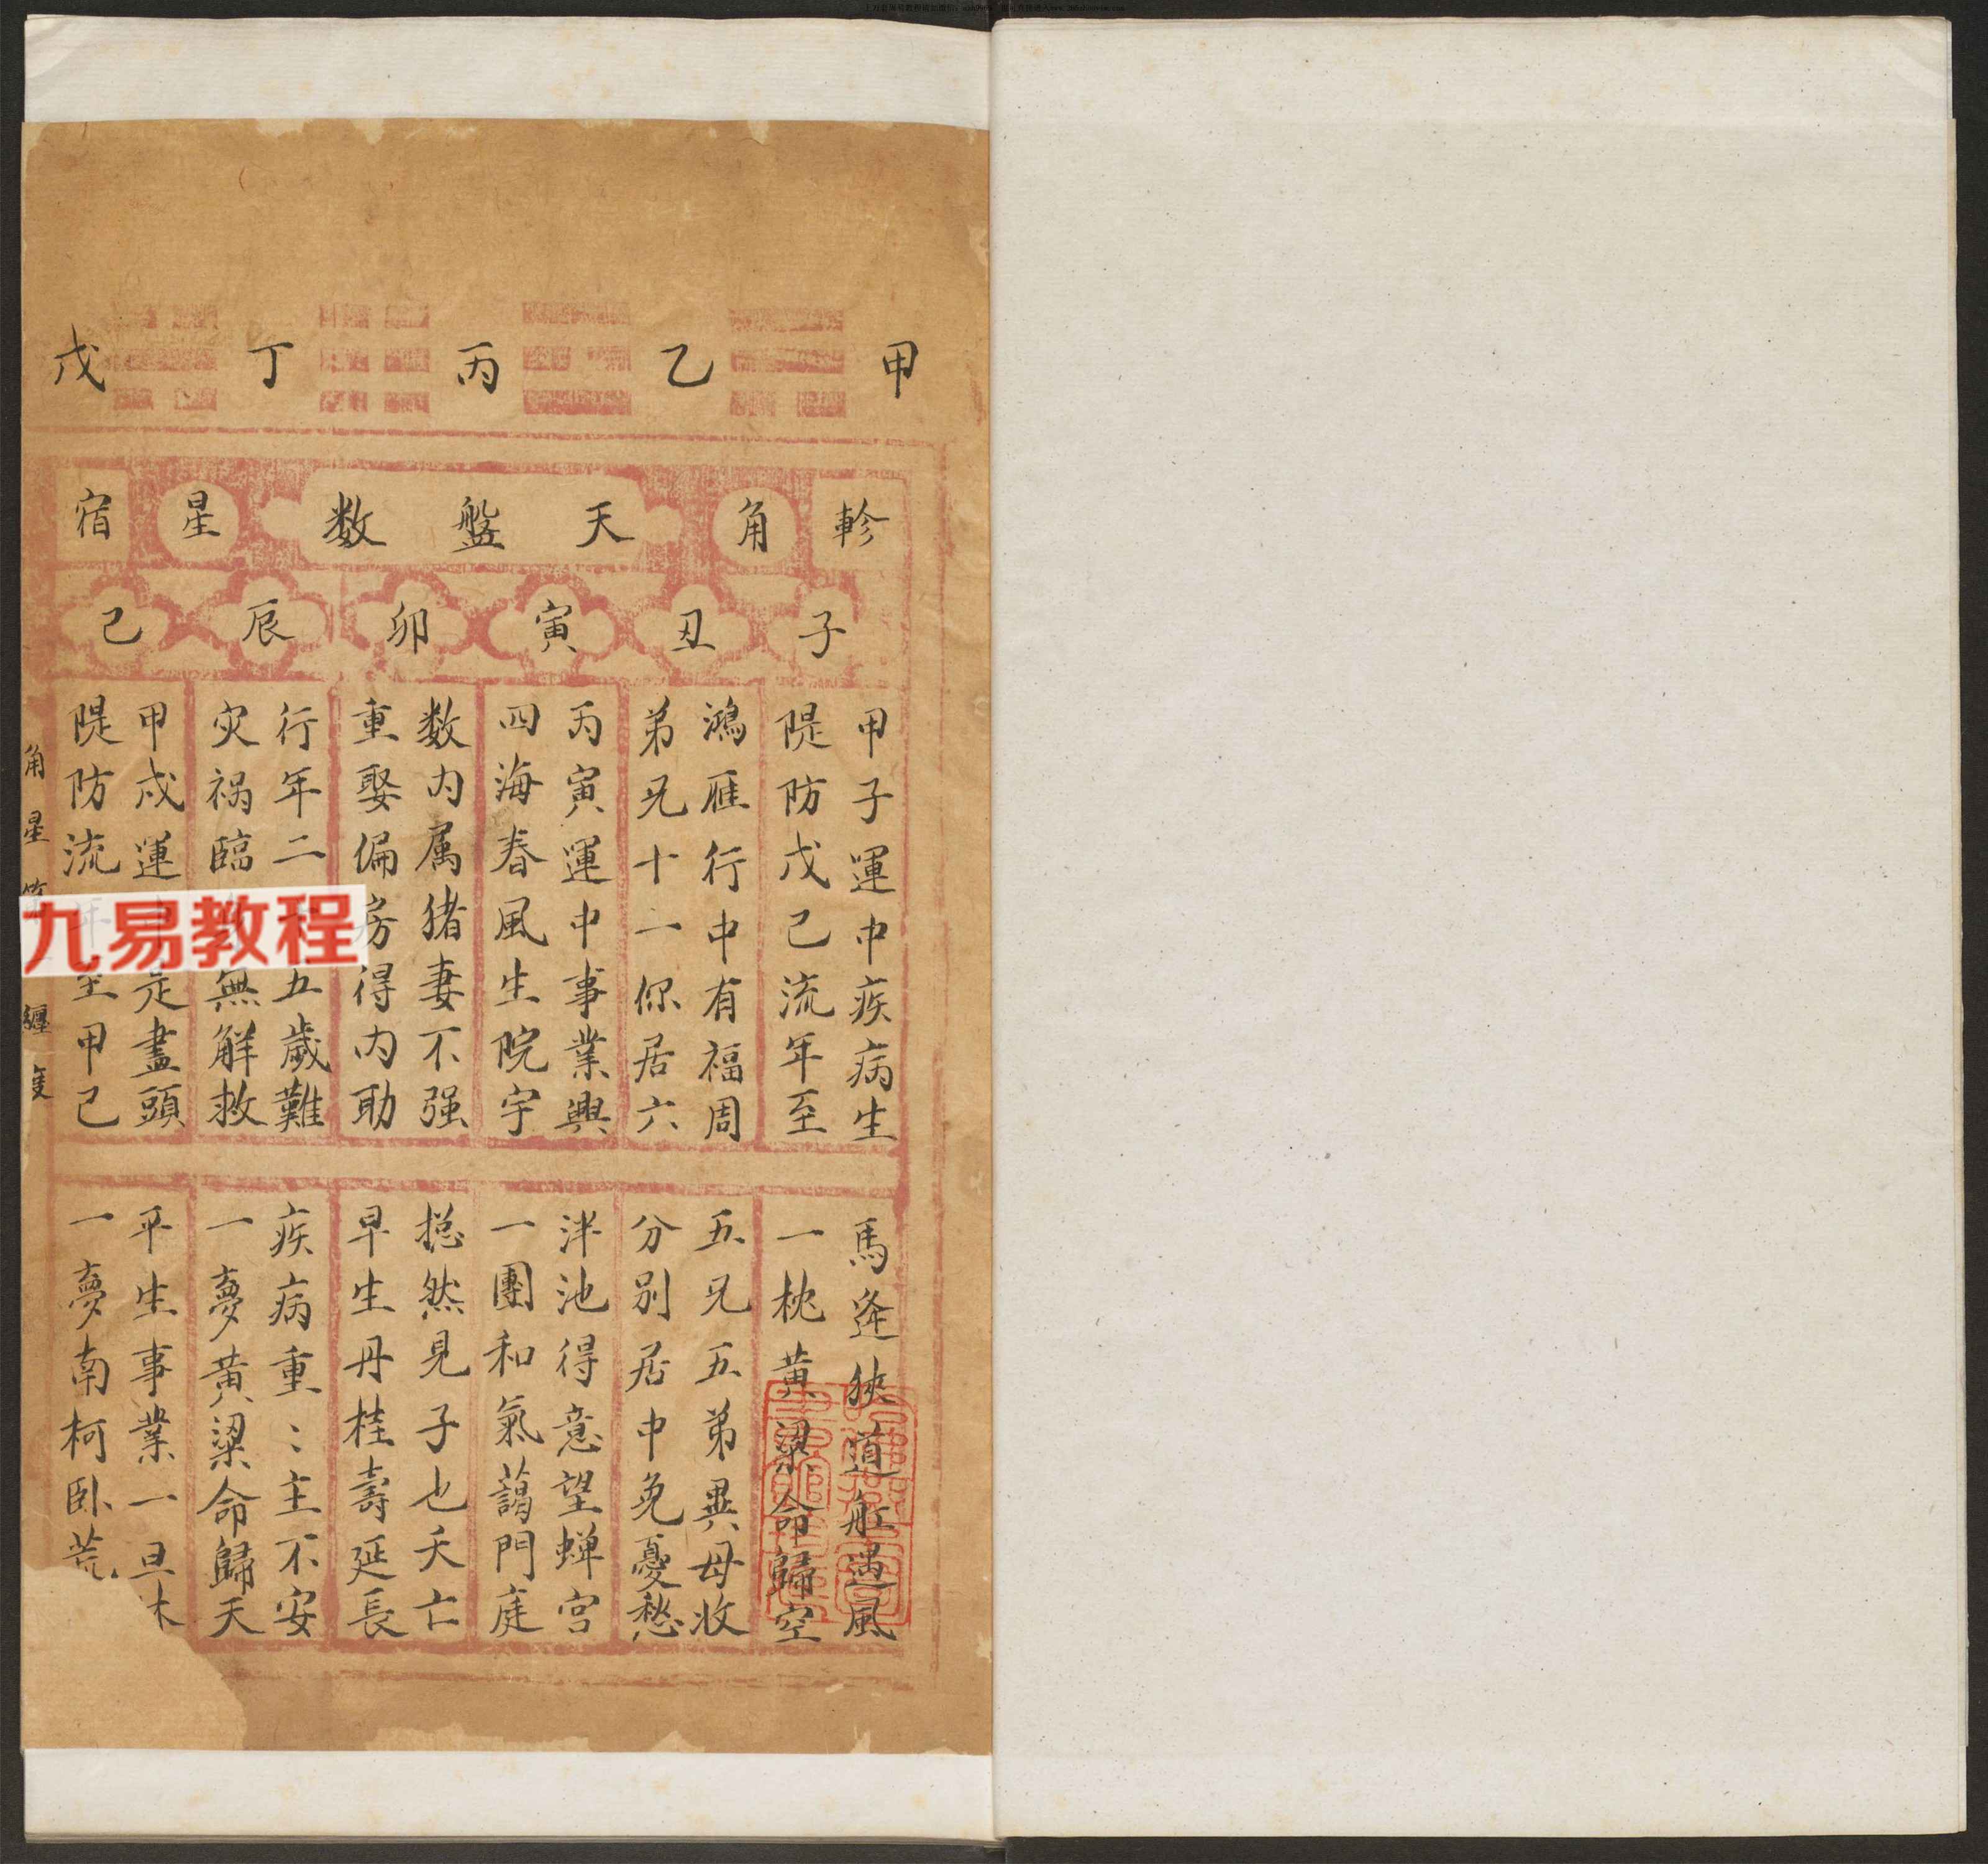 甲 乙 丙 丁 戊
軫 角 天盤数 星 宿
子 丑 寅 卯 辰 巳
甲子運中疾病生
隄防戊己流年至
鴻雁行中有福周
弟兄十一你居六
丙寅運中事業興
四海春風生院宇
数内属猪妻不强
重娶偏房得内助
行年二十五歲難
灾祸臨無解救
甲戌運中走盡頭
隄防流年至甲己
馬逢狹道舡遇風
一枕黄粱命歸空
五兄五弟異母收
分别居中免憂愁
泮池得意望蟬宫
一團和氣藹門庭
揔然見子也夭亡
早生丹桂壽延長
疾病重〻主不安
一夢黄粱命歸天
平生事業一旦休
一夢南柯卧荒
角星 纏度
九易教程